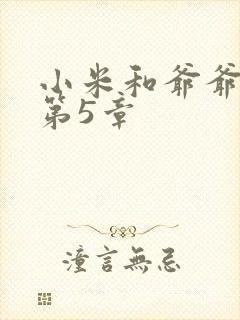 小米和爷爷
第5章
潼言無忌